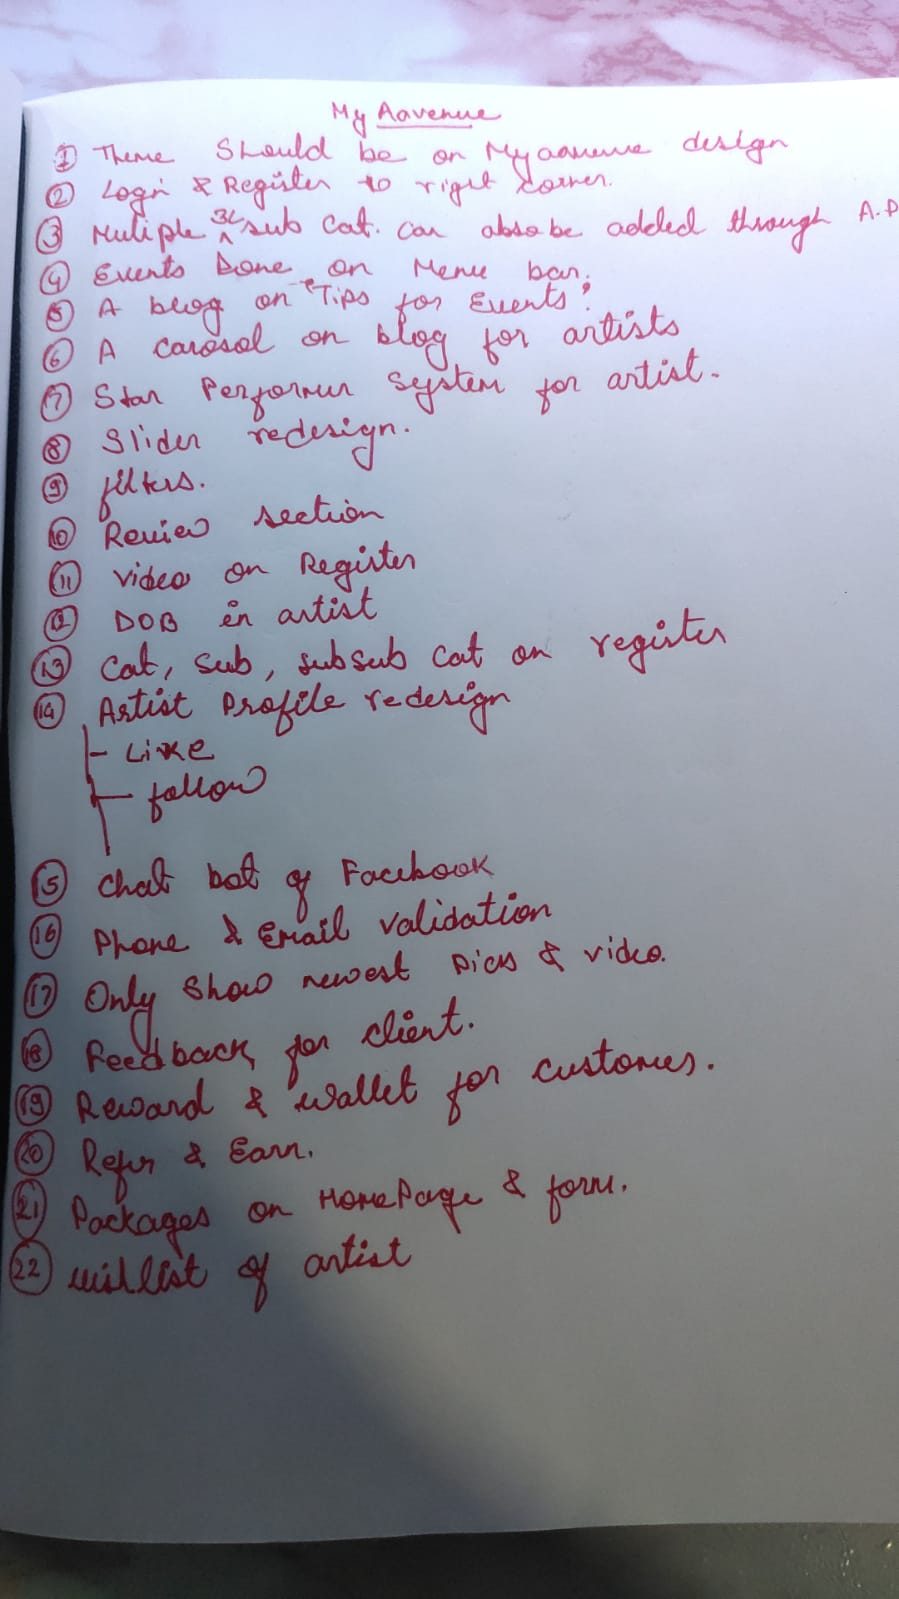 My Aavenue
① Theme Should be on Myaavenue design
② Login & Register to right corner.
③ Muliple 3L sub Cat. can also be added through A.P
④ Events Done on Menu bar.
⑤ A blog on "Tips for Events"
⑥ A carosal on blog for artists
⑦ Star Performer System for artist.
⑧ Slider redesign.
⑨ filters.
⑩ Review section
⑪ video on Register
⑫ DOB in artist
⑬ Cat, Sub, subsub Cat on register
⑭ Artist Profile redesign
- Like
- follow
⑮ Chat bot of Facebook
⑯ Phone & Email validation
⑰ Only Show newest pics & video.
⑱ Feedback for client.
⑲ Reward & wallet for customers.
⑳ Refer & Earn.
㉑ Packages on HomePage & form.
㉒ wishlist of artist